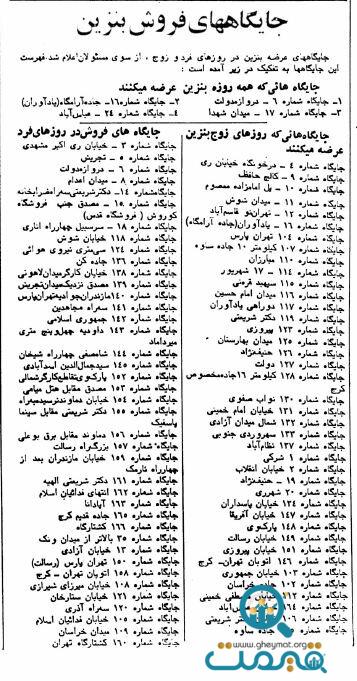 جایگاههای فروش بنزین
جایگاههای عرضه بنزین در روزهای فرد و زوج ، از سوی مسئولان اعلام شد. فهرست
این جایگاهها به تفکیک در زیر آمده است :
جایگاه هائی که همه روزه بنزین عرضه میکنند
۱- جایگاه شماره ۶ - دروازه دولت
۲- جایگاه شماره ۱۶- جاده آرامگاه (یادآوران)
۳- جایگاه شماره ۱۷ - میدان شهدا
۴- جایگاه شماره ۲۴ - عباس‌آباد
جایگاه‌هائی‌که روزهای زوج بنزین
عرضه میکنند
جایگاه شماره ۴ - درخونگاه خیابان ری
جایگاه شماره ۹ - کالج حافظ
جایگاه شماره ۱۰ - پل امامزاده معصوم
جایگاه شماره ۱۱ - میدان شوش
جایگاه شماره ۱۲ - تهران‌نو قاسم‌آباد
جایگاه شماره ۱۶ - یادآوران (جاده آرامگاه)
جایگاه شماره ۱۰۴ تهران پارس
جایگاه شماره ۱۰۷ کیلومتر ۱۰ جاده ساوه
جایگاه شماره ۱۱۰ مبارزان
جایگاه شماره ۱۱۴ - ۱۷ شهریور
جایگاه شماره ۱۱۵ سپهبد قرنی
جایگاه شماره ۱۱۶ میدان امام حسین
جایگاه شماره ۱۱۷ دوراهی یادآوران
جایگاه شماره ۱۱۹ دکتر شریعتی
جایگاه شماره ۱۲۳ پیروزی
جایگاه شماره ۱۲۵ میدان بهارستان
جایگاه شماره ۱۲۶ حنیف‌نژاد
جایگاه شماره ۱۲۷ دولت
جایگاه شماره ۱۲۸ کیلومتر ۱۶ جاده مخصوص
کرج
جایگاه شماره ۱۳۰ نواب صفوی
جایگاه شماره ۱۳۱ خیابان امام خمینی
جایگاه شماره ۱۳۲ شمال میدان آزادی
جایگاه شماره ۱۳۳ سهروردی جنوبی
جایگاه شماره ۱۳۷ نظام‌آباد
جایگاه شماره ۱ شرکتی
جایگاه شماره ۲ خیابان انقلاب
جایگاه شماره ۱۹ - حنیف‌نژاد
جایگاه شماره ۲۰ شهرری
جایگاه شماره ۱۳۴ خیابان پاسداران
جایگاه شماره ۱۴۷ خیابان آفریقا
جایگاه شماره ۱۴۸ پارک‌وی
جایگاه شماره ۱۴۹ خیابان رسالت
جایگاه شماره ۱۵۱ خیابان پیروزی
جایگاه شماره ۱۴۶ اتوبان تهران- کرج
جایگاه شماره ۱۰۳ خیابان جمهوری
جایگاه شماره ۱۰۲ جاده خراسان
جایگاه شماره خمینی
جایگاه شماره
جایگاه شماره شریعتی
جایگاه شماره جاده ساوه
جایگاه های فروش در روزهای فرد
جایگاه شماره ۳ - خیابان ری اکبر مشهدی
جایگاه شماره ۵ - تجریش
جایگاه شماره ۶ - دروازه دولت
جایگاه شماره ۸ - میدان اعدام
جایگاه شماره ۱۴- دکترشریعتی‌سه‌راه‌ضرابخانه
جایگاه شماره ۱۵ - مصدق جنب فروشگاه
کوروش (فروشگاه قدس)
جایگاه شماره ۱۸ - سرسبیل چهارراه اناری
جایگاه شماره ۱۱۸ خیابان شوش
جایگاه شماره ۱۲۴ سی‌متری نیروی هوائی
جایگاه شماره ۱۳۶ جاده کن
جایگاه شماره ۱۳۸ خیابان کارگرمیدان‌لاهوتی
جایگاه شماره ۱۳۹ مصدق نزدیک‌میدان‌تجریش
جایگاه شماره ۱۴۰ مازندران‌جوادیه‌تهران‌پارس
جایگاه شماره ۱۴۱ سه‌راه مجاهدین
جایگاه شماره ۱۴۲ جمهوری اسلامی
جایگاه شماره ۱۴۳ داودیه چهل‌وپنج متری
میرداماد
جایگاه شماره ۱۴۴ شاه‌مصفی چهارراه شیخان
جایگاه شماره ۱۴۵ سیدجمال‌الدین اسدآبادی
جایگاه شماره ۱۵۲ پارک‌وی‌تقاطع‌کارگرشمالی
جایگاه شماره ۱۵۳ مصدق مقابل هتل میامی
جایگاه شماره ۱۵۴ خیابان دماوندنرسیده‌به‌سه‌راه
جایگاه شماره ۱۵۵ دکتر شریعتی مقابل سینما
پاسفیک
جایگاه شماره ۱۵۶ دماوند مقابل برق بوعلی
جایگاه شماره ۱۵۷ بزرگراه رسالت
جایگاه شماره ۱۵۹ خیابان مازندران بعد از
چهارراه نارمک
جایگاه شماره ۱۶۱ دکتر شریعتی الهیه
جایگاه شماره ۱۶۲ انتهای فدائیان اسلام
جایگاه شماره ۱۶۳ آپادانا
جایگاه شماره ۱۶۵ جاده قدیم کرج
جایگاه شماره ۱۶۶ کشتارگاه
جایگاه شماره ۳۵ بالاتر از میدان ونک
جایگاه شماره ۱۳ خیابان آزادی
جایگاه شماره ۱۵۰ تهران پارس (رسالت)
جایگاه شماره ۱۵۸ اتوبان تهران - کرج
جایگاه شماره ۱۰۸ خیابان میرزای شیرازی
جایگاه شماره ۱۲۱ خیابان ستارخان
جایگاه شماره ۱۲۰ سه‌راه آذری
جایگاه شماره ۱۰۶ خیابان فدائیان اسلام
جایگاه شماره ۱۰۹ میدان خراسان
جایگاه شماره ۱۶۰ کشتارگاه تهران
قیمت
www.gheymat.org